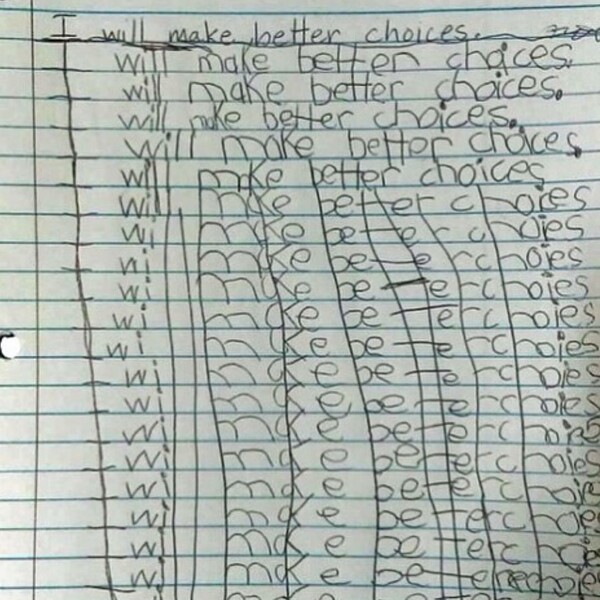 I will make better choices.
I will make better choices.
I will make better choices.
I will make better choices.
I will make better choices.
I will make better choices
I will make better choies
I will make better choies
I will make better choies
I will make better choies
I will make better choies
I will make better choies
I will make better choies
I will make better choies
I will make better choies
I will make better choies
I will make better choie
I will make better choe
I will make better
I will make better